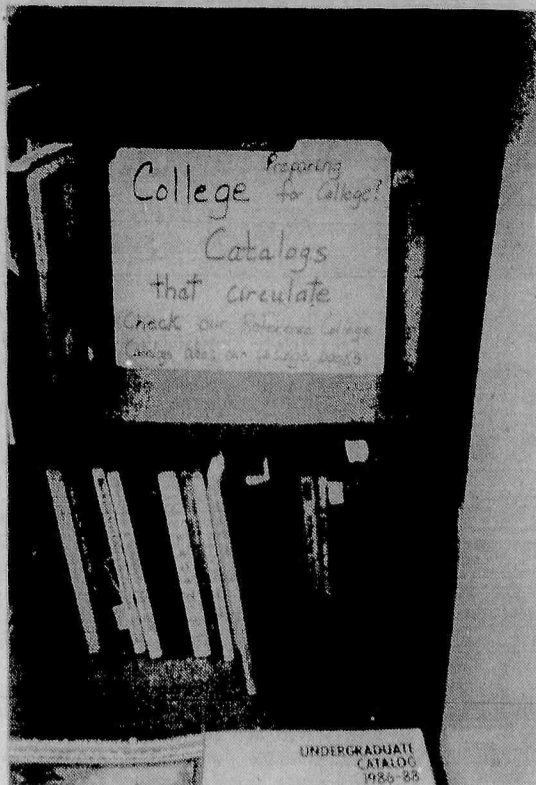 Preparing
College for College!
Catalogs
that circulate
Check our Reference College
Catalogs also our college books
UNDERGRADUATE
CATALOG
1986-88